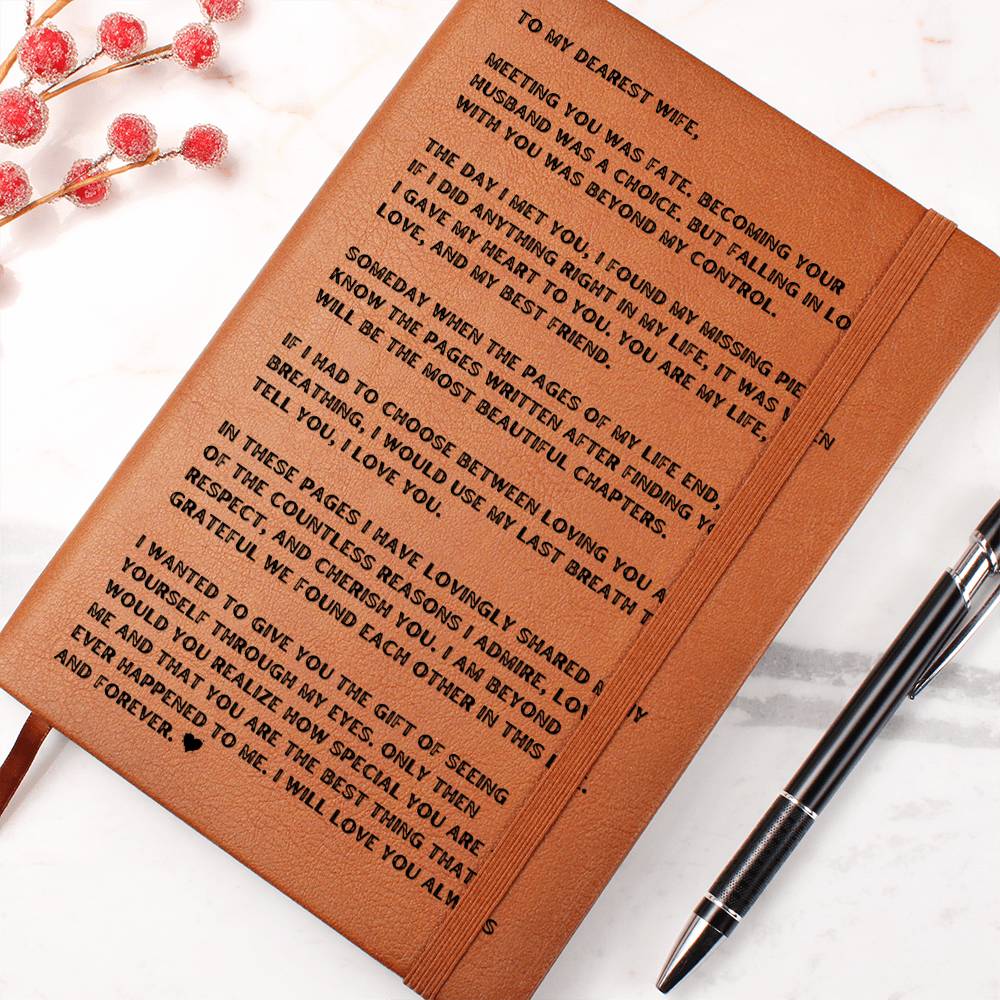 TO MY DEAREST WIFE,
MEETING YOU WAS FATE. BECOMING YOUR
HUSBAND WAS A CHOICE. BUT FALLING IN LO
WITH YOU WAS BEYOND MY CONTROL.
THE DAY I MET YOU, I FOUND MY MISSING PIE
IF I DID ANYTHING RIGHT IN MY LIFE, IT WAS W EN
I GAVE MY HEART TO YOU. YOU ARE MY LIFE,
LOVE, AND MY BEST FRIEND.
SOMEDAY WHEN THE PAGES OF MY LIFE END,
KNOW THE PAGES WRITTEN AFTER FINDING YO
WILL BE THE MOST BEAUTIFUL CHAPTERS.
IF I HAD TO CHOOSE BETWEEN LOVING YOU A
BREATHING, I WOULD USE MY LAST BREATH T
TELL YOU, I LOVE YOU.
IN THESE PAGES I HAVE LOVINGLY SHARED M Y
OF THE COUNTLESS REASONS I ADMIRE, LOV
RESPECT, AND CHERISH YOU. I AM BEYOND
GRATEFUL WE FOUND EACH OTHER IN THIS L .
I WANTED TO GIVE YOU THE GIFT OF SEEING
YOURSELF THROUGH MY EYES. ONLY THEN
WOULD YOU REALIZE HOW SPECIAL YOU ARE
ME AND THAT YOU ARE THE BEST THING THAT
EVER HAPPENED TO ME. I WILL LOVE YOU ALW S
AND FOREVER. ♥